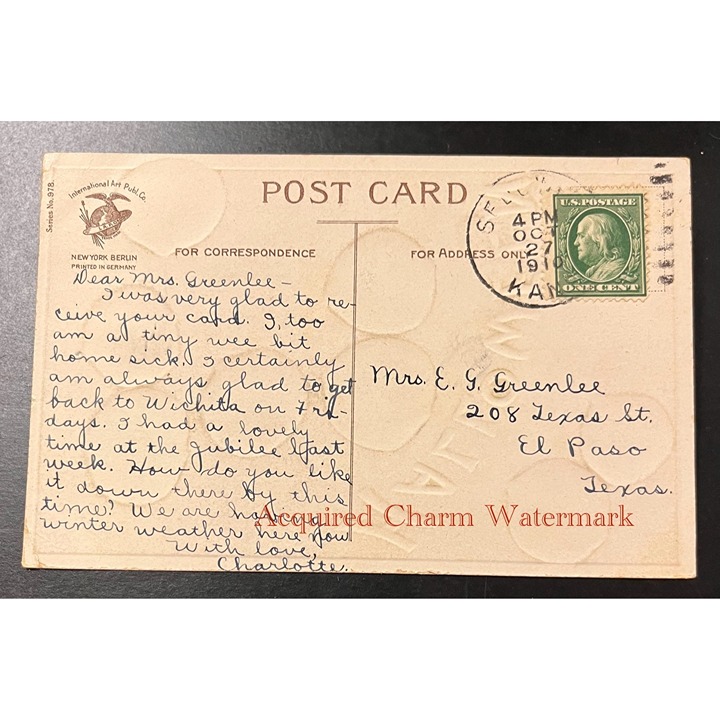 International Art Publ. Co.
Series No. 978.
NEW YORK BERLIN
PRINTED IN GERMANY
POST CARD
FOR CORRESPONDENCE
FOR ADDRESS ONLY
4 PM
OCT
27
1910
KAN
U.S. POSTAGE
ONE CENT
Dear Mrs. Greenlee -
I was very glad to re-
ceive your card. I, too
am a tiny wee bit
home sick. I certainly
am always glad to get
back to Wichita on Fri-
days. I had a lovely
time at the Jubilee last
week. How do you like
it down there by this
time? We are having
winter weather here now
With love,
Charlotte.
Mrs. E. G. Greenlee
208 Texas St.
El Paso
Texas.
Acquired Charm Watermark